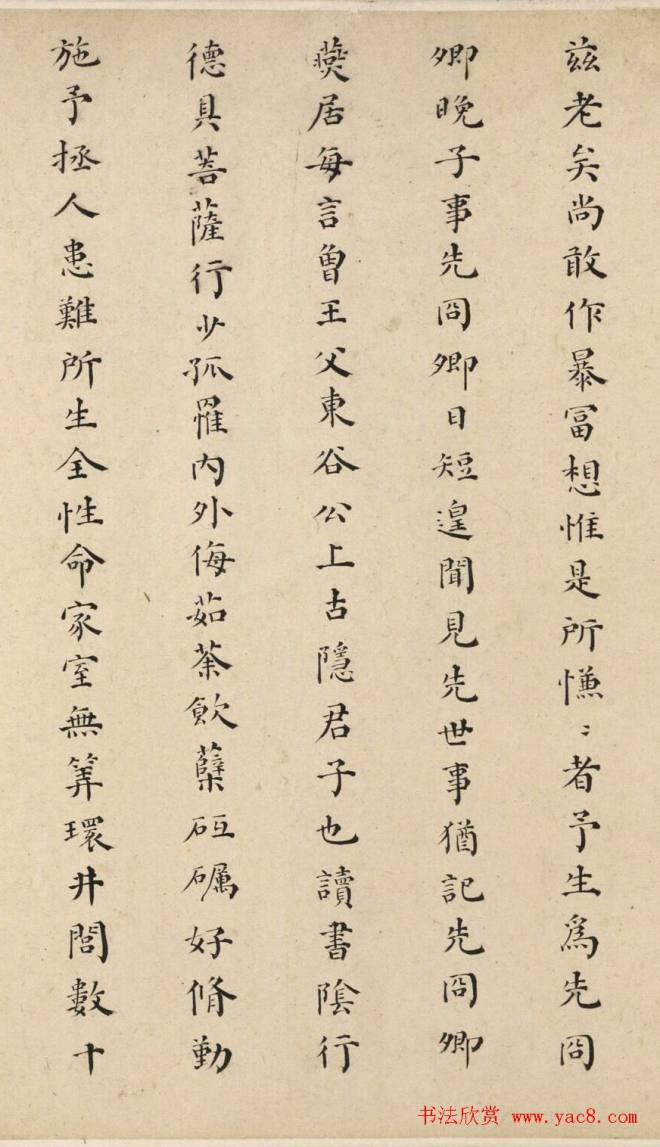 兹老矣尚敢作暴富想惟是所慊〻者予生為先冏
卿晚子事先冏卿日短遑聞見先世事猶記先冏卿
燕居每言曾王父東谷公上古隱君子也讀書陰行
德具菩薩行少孤罹内外侮茹荼飲蘗砥礪好脩勤
施予拯人患難所生全性命家室無筭環井閭數十
书法欣赏 www.yac8.com